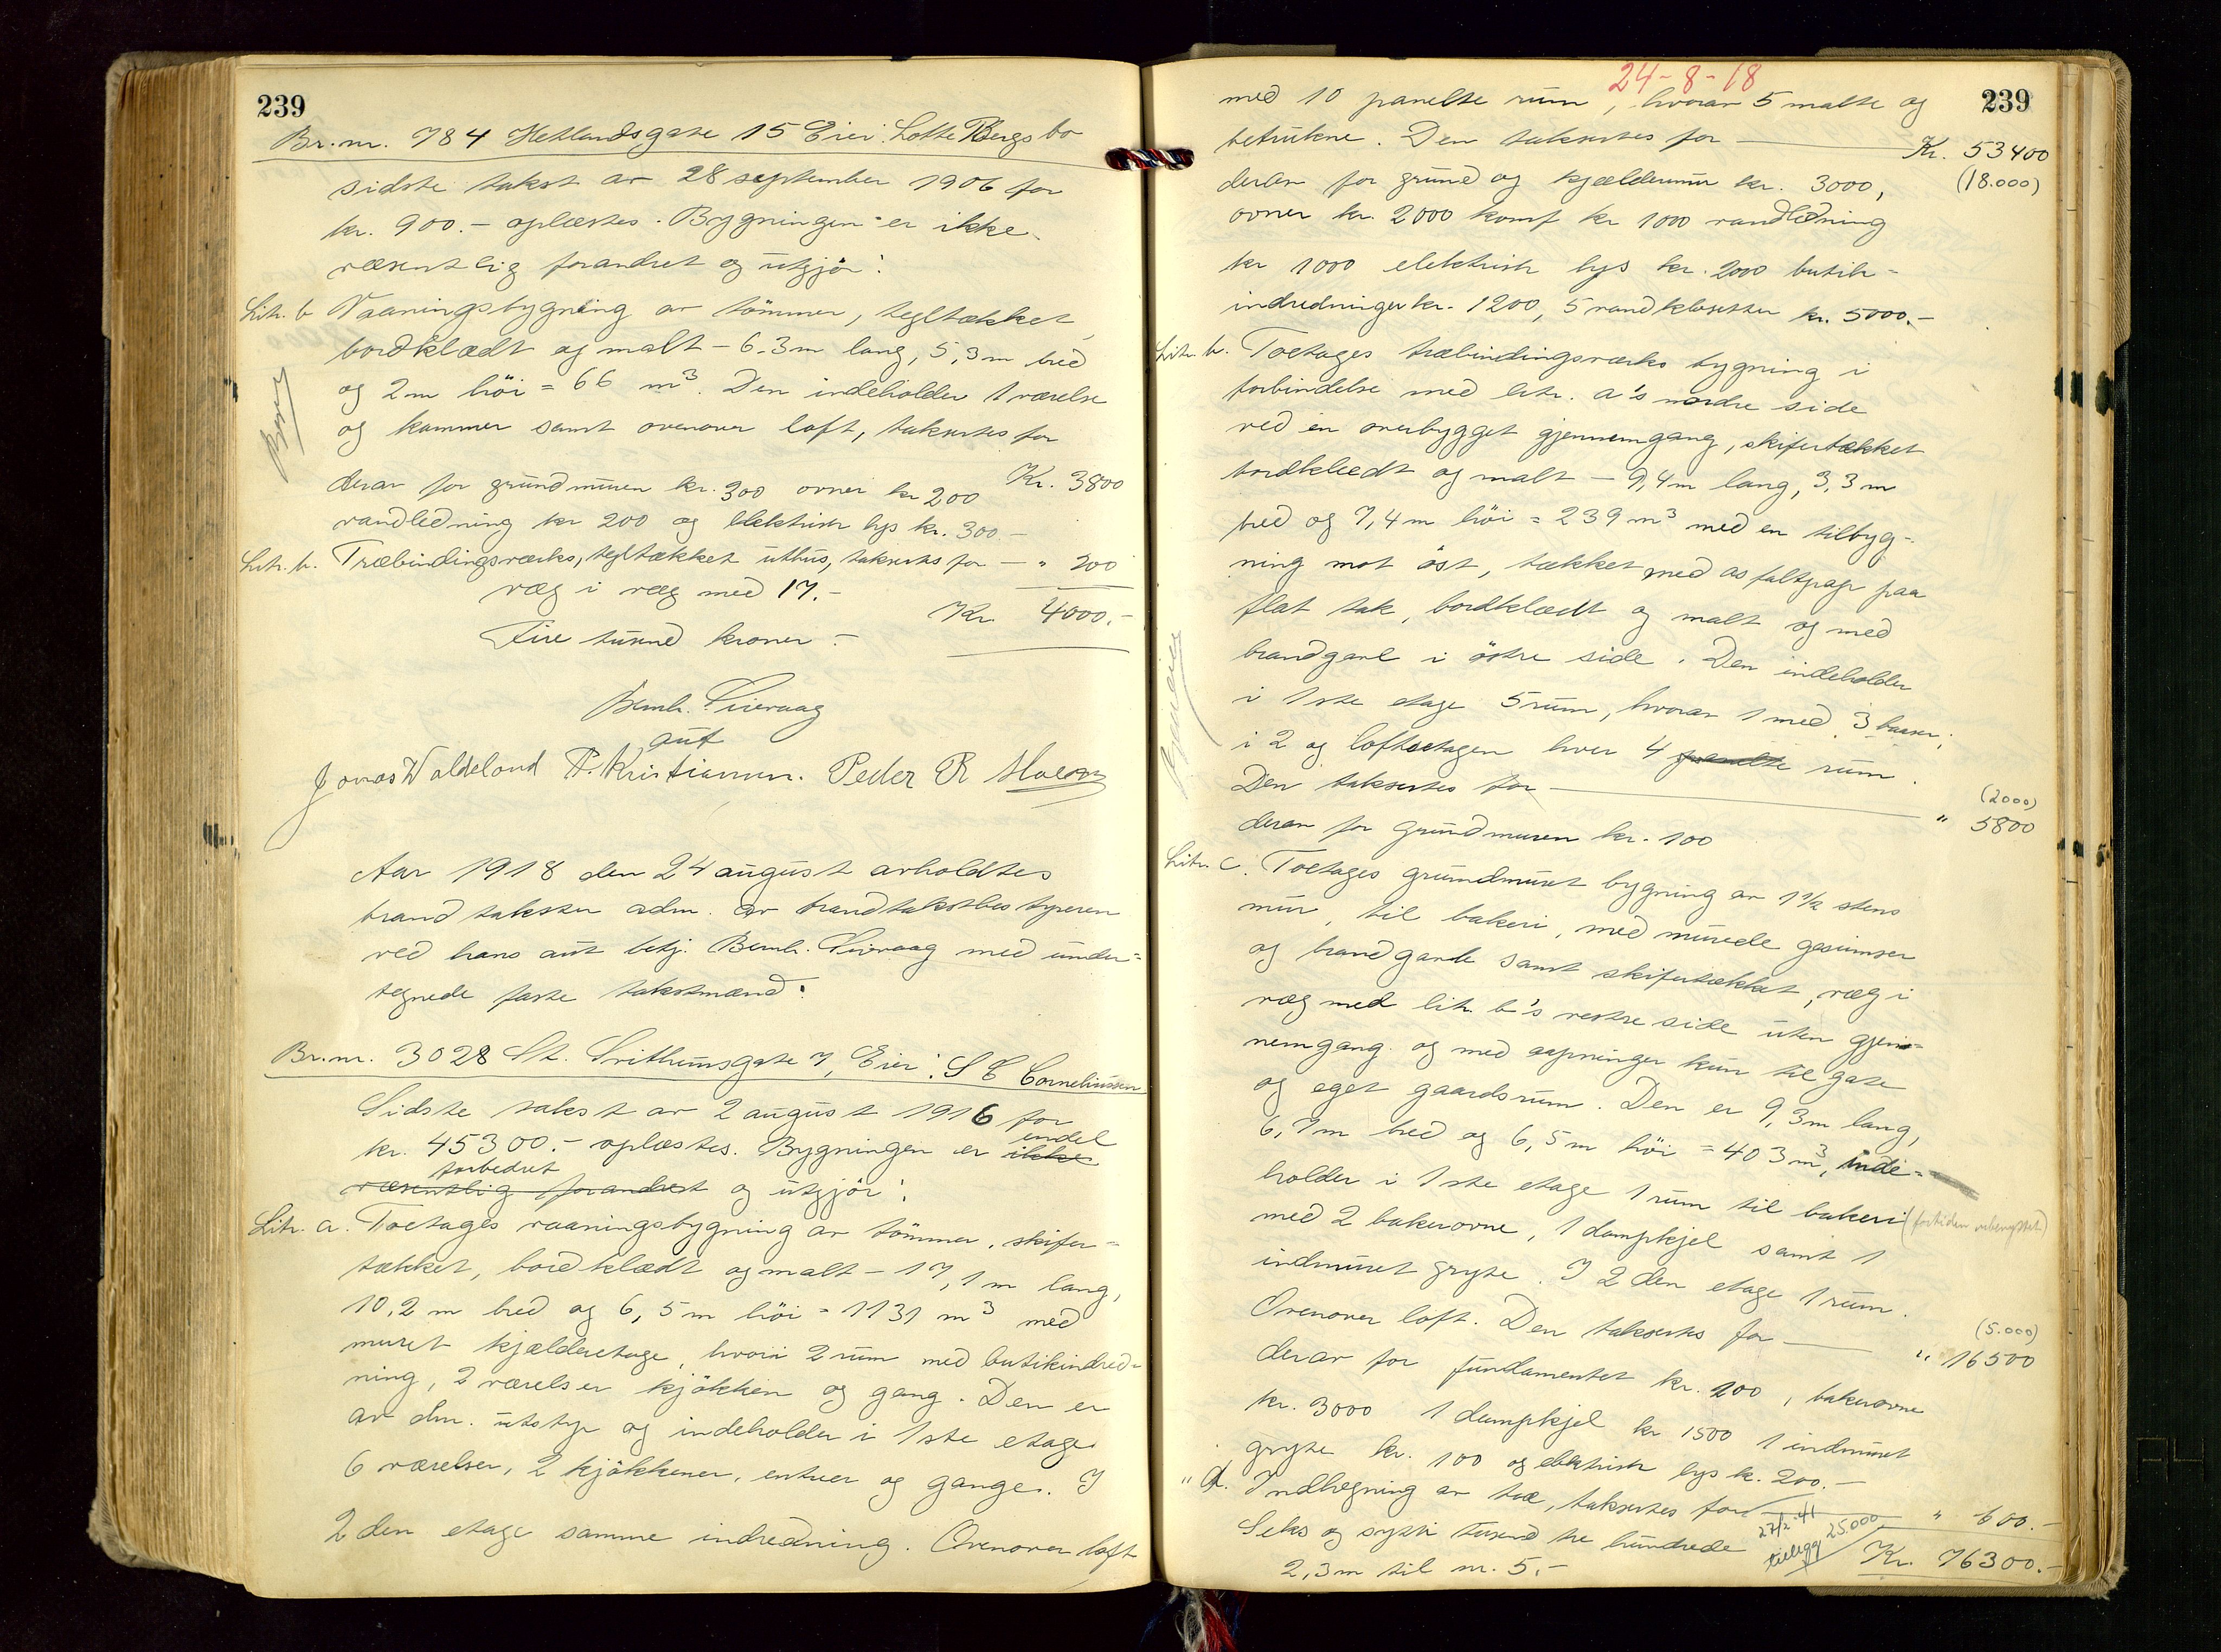 239
Br.nr. 784 Hetlandsgate 15 Eier: Lotte Bergs bo
sidste takst av 28 september 1906 for
kr. 900.- oplæstes. Bygningen er ikke
væsentlig forandret og utgjør:
Litr. a Vaaningsbygning av tømmer, tegltækket,
bordklædt og malt - 6,3m lang, 5,3m bred
og 2m høi = 66 m³. Den indeholder 1 værelse
og kammer samt ovenover loft, takseres for
Kr. 3800
derav for grundmuren kr. 300 ovner kr 200
vandledning kr 200 og elektrisk lys kr. 300.-
Litr. b. Træbindingsværks, tegltækket uthus, takseres for - " 200
væg i væg med 17.-
Kr. 4000.-
Fire tusund kroner.-
Bernh. Sieraag
aut
Jonas Waldeland P. Kristiansen. Peder R Moen
Aar 1918 den 24 august avholdtes
brandtakster adm. av brandtakstbestyreren
ved hans aut betj. Bernh. Sieraag med under=
tegnede faste takstmænd:
Br.nr. 3028 St. Svithunsgate 7, Eier: S E Corneliussen
Sidste takst av 2 august 1916 for
kr. 45300.- oplæstes. Bygningen er ikke endel
væsentlig forandret forbedret og utgjør:
Litr. a. Toetages vaaningsbygning av tømmer, skifer=
tækket, bordklædt og malt - 17,1m lang,
10,2 m bred og 6,5m høi = 1131 m³ med
muret kjælderetage, hvori 2 rum med butikindred=
ning, 2 værelser kjøkken og gang. Den er
av alm. utstyr og indeholder i 1ste etage
6 værelser, 2 kjøkkener, entreer og ganger. I
2den etage samme indredning. Ovenover loft
24-8-18
239
med 10 panelte rum, hvorav 5 malte og
betrukne. Den takseres for - Kr. 53400
(18.000)
derav for grund og kjældermur kr. 3000,
ovner kr. 2000 komf kr 1000 vandledning
kr 1000 elektrisk lys kr. 2000 butik-
indredninger kr. 1200, 5 vandklosetter kr. 5000.-
Litr. b. Toetages træbindingsværks bygning i
forbindelse med litr. a's nordre side
ved en overbygget gjennemgang, skifertækket
bordklædt og malt - 9,4m lang, 3,3m
bred og 7,4m høi = 239 m³ med en tilbyg-
ning mot øst, tækket med asfaltpap paa
flat tak, bordklædt og malt og med
brandgavl i østre side. Den indeholder
i 1ste etage 5 rum, hvorav 1 med 3 karer;
i 2 og loftsetagen hver 4 panelte rum.
Den takseres for -
(2000)
" 5800
derav for grundmuren kr. 100
Litr. c. Toetages grundmuret bygning av 1½ stens
mur, til bakeri, med murede gesimser
og brandgavle samt skifertækket, væg i
væg med litr. b's vestre side uten gjen=
nemgang og med aapninger kun til gate
og eget gaardsrum. Den er 9,3m lang,
6,7m bred og 6,5m høi = 403 m³, inde=
holder i 1ste etage 1 rum til bakeri (fortiden ubenyttet)
med 2 bakerovne, 1 dampkjel samt 1
indmuret gryte. I 2den etage 1 rum.
Ovenover loft. Den takseres for -
(5.000)
" 16500
derav for fundamentet kr. 200, bakerovne
kr. 3000 1 dampkjel kr 1500 1 indmuret
gryte kr. 100 og elektrisk lys kr. 200.-
" d. Indhegning av træ, takseres for - " 600.-
Seks og sytti tusund tre hundrede
27/2-41 25.000
tillegg
Kr. 76300.-
2,3m til nr. 5.-